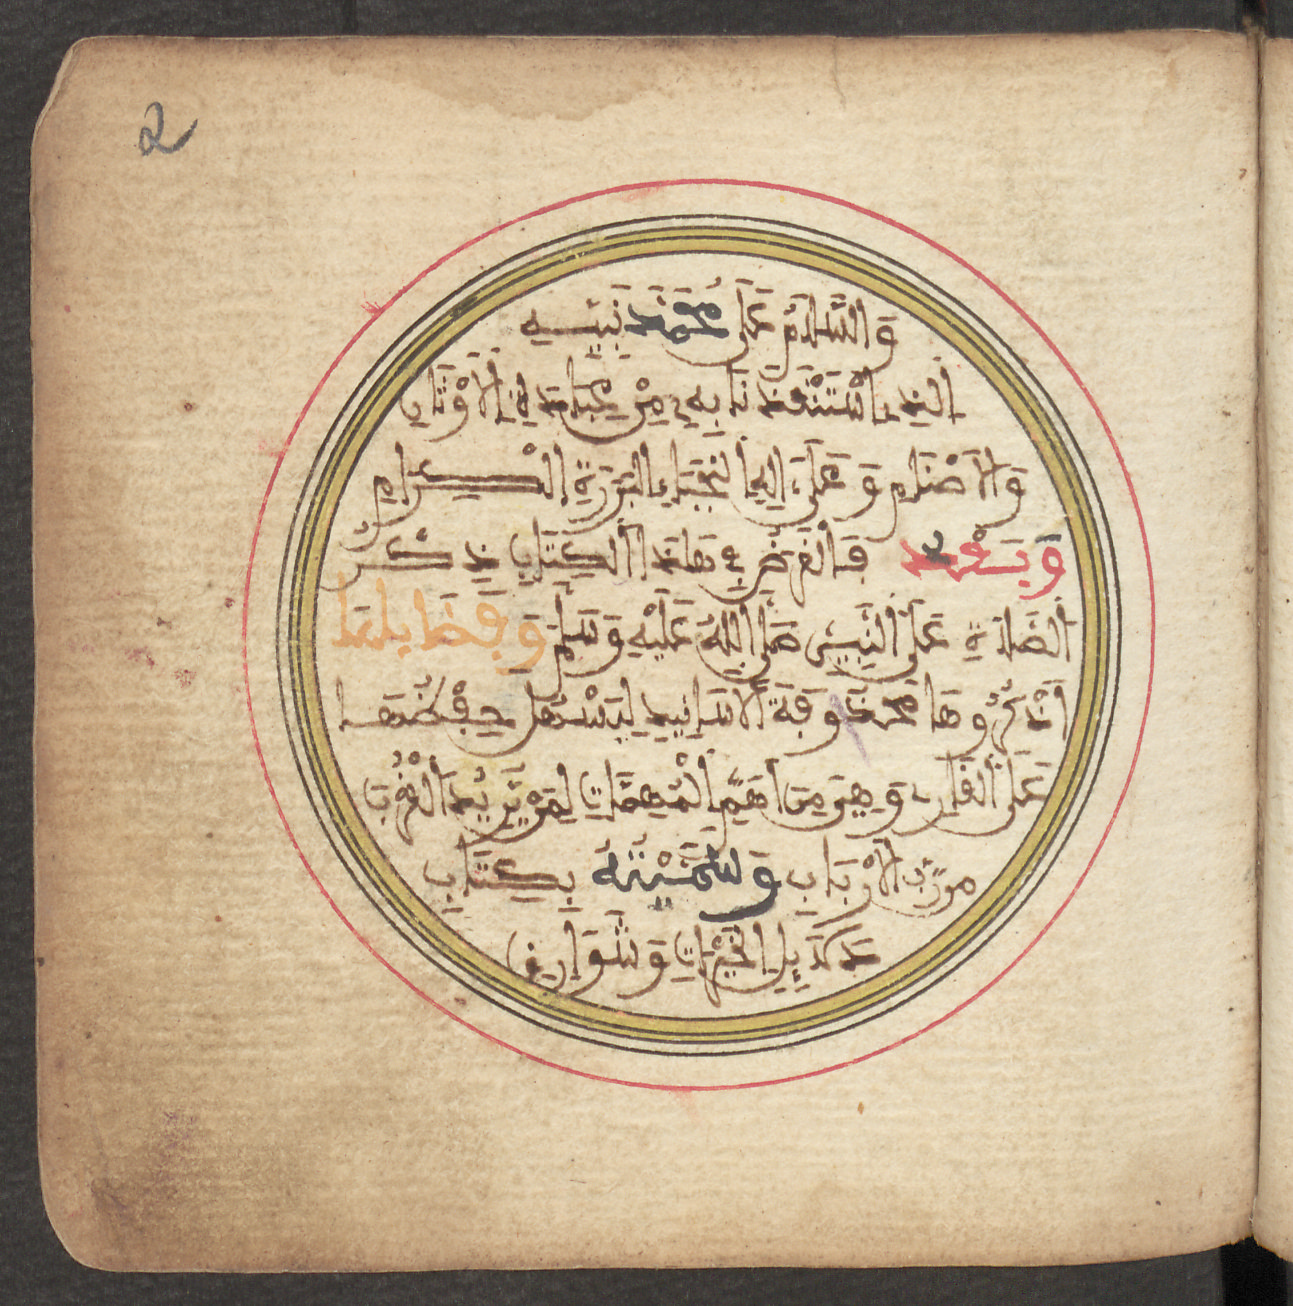 2
وَالسَّلَامُ عَلَى مُحَمَّدٍ نَبِيِّهِ
الذِي اسْتَنْقَذَنَا بِهِ مِنْ عِبَادَةِ الْأَوْثَانِ
وَالْأَصْنَامِ وَعَلَى ءَالِهِ النُّجَبَاءِ الْبَرَرَةِ الْكِرَامِ
وَبَعْدُ فَالْغَرَضُ فِي هَذَا الْكِتَابِ ذِكْرُ
الصَّلَاةِ عَلَى النَّبِيِّ صَلَّى اللَّهُ عَلَيْهِ وَسَلَّمَ وَفَضَائِلِهَا
نَذْكُرُهَا مَحْذُوفَةَ الْأَسَانِيدِ لِيَسْهُلَ حِفْظُهَا
عَلَى الْقَارِئِ وَهِيَ مِنْ أَهَمِّ الْمُهِمَّاتِ لِمَنْ يُرِيدُ الْقُرْبَ
مِنْ رَبِّ الْأَرْبَابِ وَسَمَّيْتُهُ بِكِتَابِ
دَلَائِلِ الْخَيْرَاتِ وَشَوَارِقِ